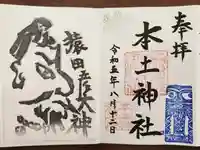 奉拝
本土神社
令和五年八月十二日
猿田彦大神